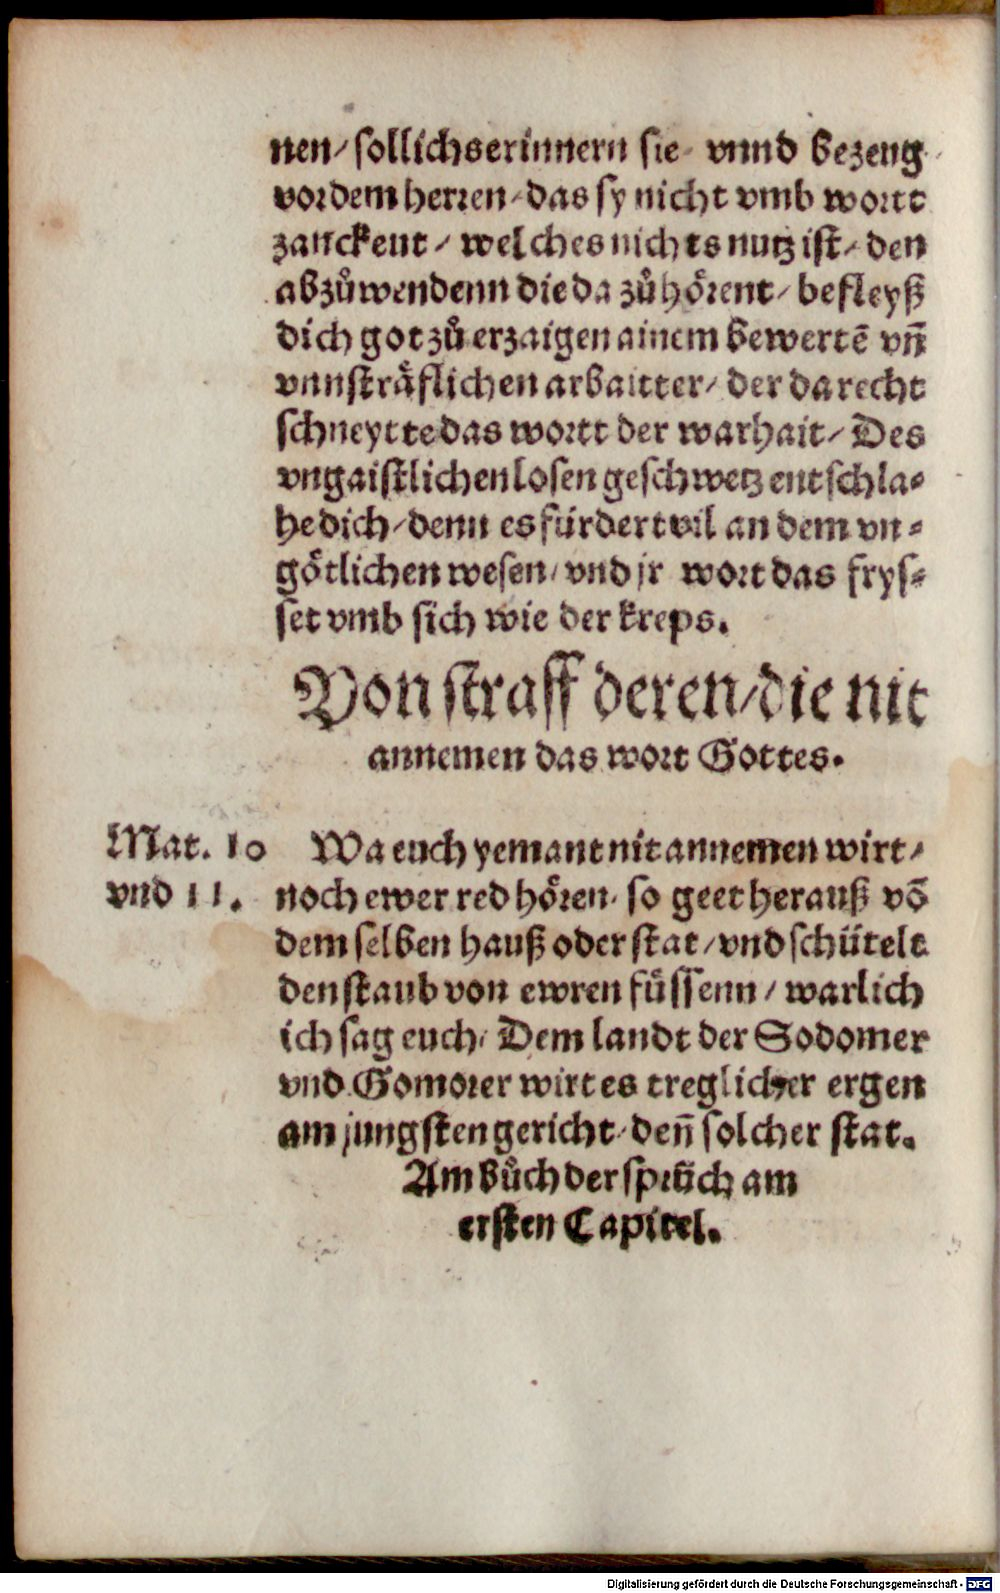 nen/ sollichs erinnern sie/ vnnd bezeug
vor dem herren/ das sy nicht vmb wortt
zanckent/ welches nichts nutz ist/ den
abzůwendenn die da zůhörent/ befleyß
dich got zů erzaigen ainem bewertē vn̄
vnnsträflichen arbaitter/ der da recht
schneytte das wortt der warhait/ Des
vngaistlichen losen geschwetz entschla-
he dich/ denn es fürdert vil an dem vn-
götlichen wesen/ vnd jr wort das frys-
set vmb sich wie der kreps.
Von straff deren/ die nit
annemen das wort Gottes.
Mat. 10 Wa euch yemant nit annemen wirt/
vnd 11. noch ewer red hören/ so geet herauß vō
dem selben hauß oder stat/ vnd schütelt
den staub von ewren füssenn/ warlich
ich sag euch/ Dem landt der Sodomer
vnd Gomorer wirt es treglicher ergen
am jungsten gericht/ den̄ solcher stat.
Am bůch der sprüch am
ersten Capitel.
Digitalisierung gefördert durch die Deutsche Forschungsgemeinschaft - DFG